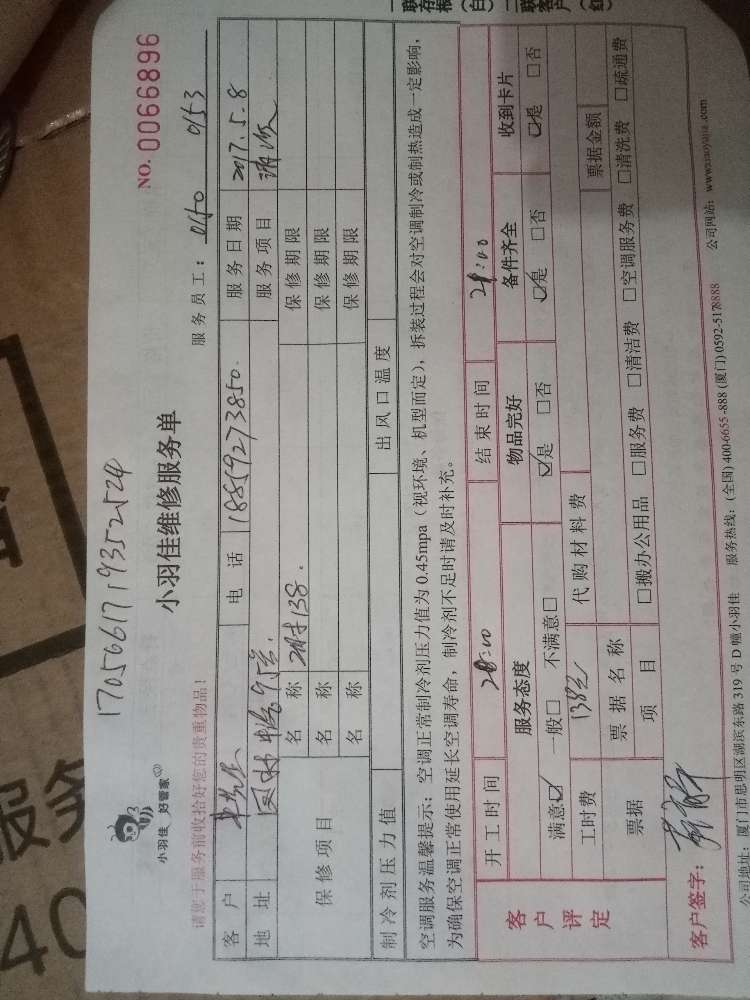 联存根(白) 二联客户(红)
170566171 9352524
NO. 0066896
小羽佳 好管家
小羽佳维修服务单
请您于服务前收拾好您的贵重物品!
服务员工: 0150 0153
客户 电话 18859273850. 服务日期 2017.5.8
地址 服务项目
保修项目 名称 2时138. 保修期限
名称 保修期限
名称 保修期限
制冷剂压力值 出风口温度
空调服务温馨提示:空调正常制冷剂压力值为0.45mpa(视环境、机型而定),拆装过程会对空调制冷或制热造成一定影响,
为确保空调正常使用延长空调寿命,制冷剂不足时请及时补充。
客户评定 开工时间 结束时间
服务态度 物品完好 备件齐全 收到卡片
满意☑ 一般□ 不满意□ ☑是 □否 ☑是 □否 ☑是 □否
工时费 138元 代购材料费
票据 票据名称 票据金额
项目 □搬办公用品 □服务费 □清洁费 □空调服务费 □清洗费 □疏通费
客户签字:
公司地址:厦门市思明区湖滨东路319号D幢小羽佳 服务热线:(全国)400-6655-888 (厦门)0592-5178888 公司网站:www.xiaoyujia.com
服务
40